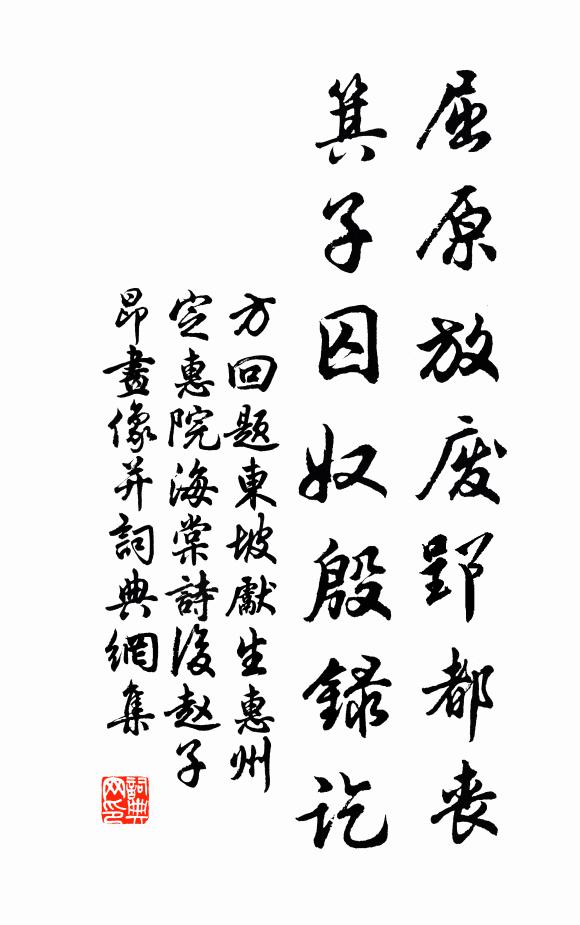 屈原放废郢都丧
箕子囚奴殷録訖
方回题東坡獻生惠州
定惠院海棠詩後赵子
昂畫像并詞典網集
詞典网印